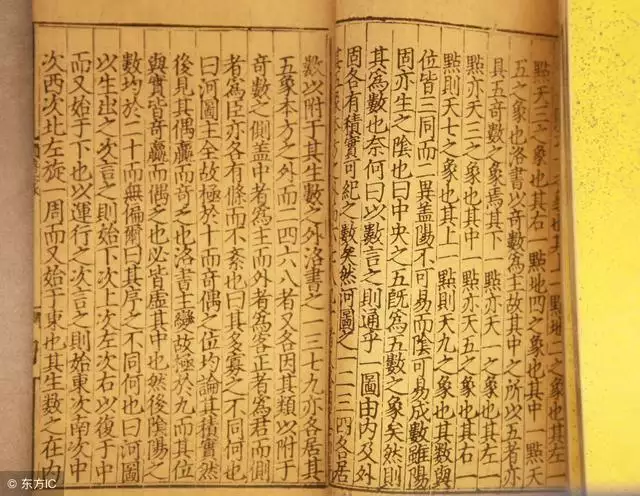 之象也其上一點地二之象也其左
點天三之象也其右一點地四之象也其中一點天
五之象也洛書以奇數爲主故其中之所以五者亦
具五奇數之象焉其下一點亦天一之象也其左一
點亦天三之象也其中一點亦天五之象也其右一
點則天七之象也其上一點則天九之象也其數與
位皆三同而二異蓋陽不可易而陰可易成數雖陽
固亦生之陰也曰中央之五旣爲五數之象矣然則
其爲數也奈何曰以數言之則通乎一圖由内及外
固各有積實可紀之數矣然河圖之一二三四各居
其五象本方
數以附于其生數之外洛書之一三七九亦各居其
五象本方之外而二四六八者又各因其類以附于
奇數之側蓋中者爲主而外者爲客正者爲君而側
者爲臣亦各有條而不紊也曰其多寡之不同何也
曰河圖主全故極於十而奇偶之位均論其積實然
後見其偶贏而奇乏也洛書主變故極於九而其位
與實皆奇贏而偶乏也必皆虛其中也然後陰陽之
數均於二十而無偏爾曰其序之不同何也曰河圖
以生出之次言之則始下次上次左次右以復于中
而又始于下也以運行之次言之則始東次南次中
次西次北左旋一周而又始于東也其生數之在内
东方IC